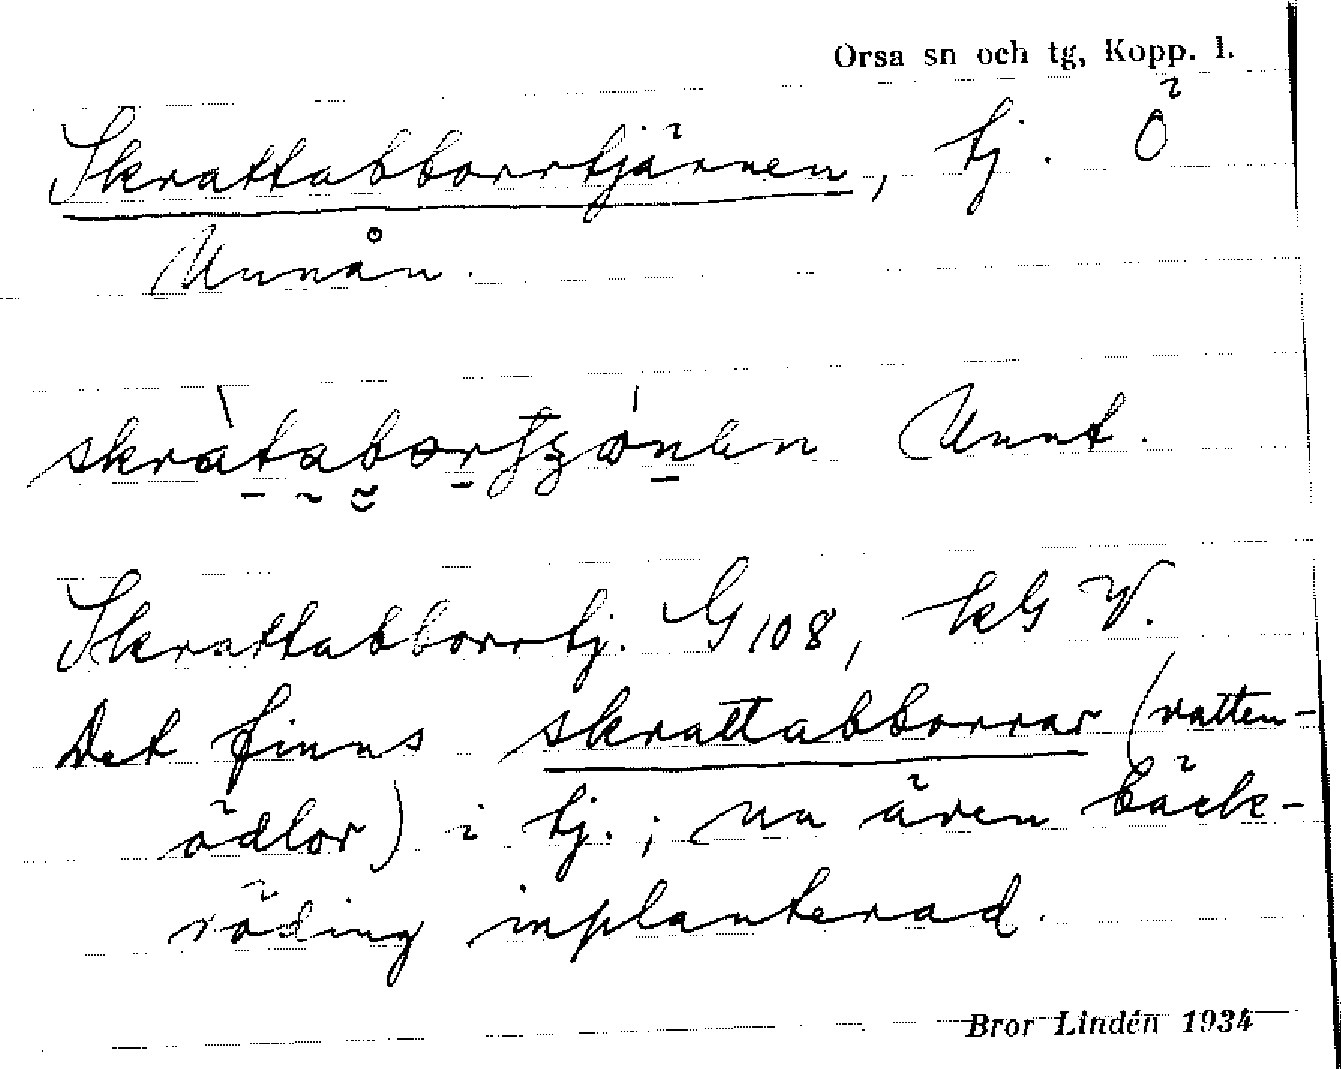 Orsa sn och tg, Kopp. l.
Skrattabborrtjärnen, tj. Ö
Unnån.
Unnt.
Skrattabborrtj. G 108, kG V.
Det finns skrattabborrar (vatten-
ödlor) i tj.; nu även bäck-
röding inplanterad.
Bror Lindén 1934